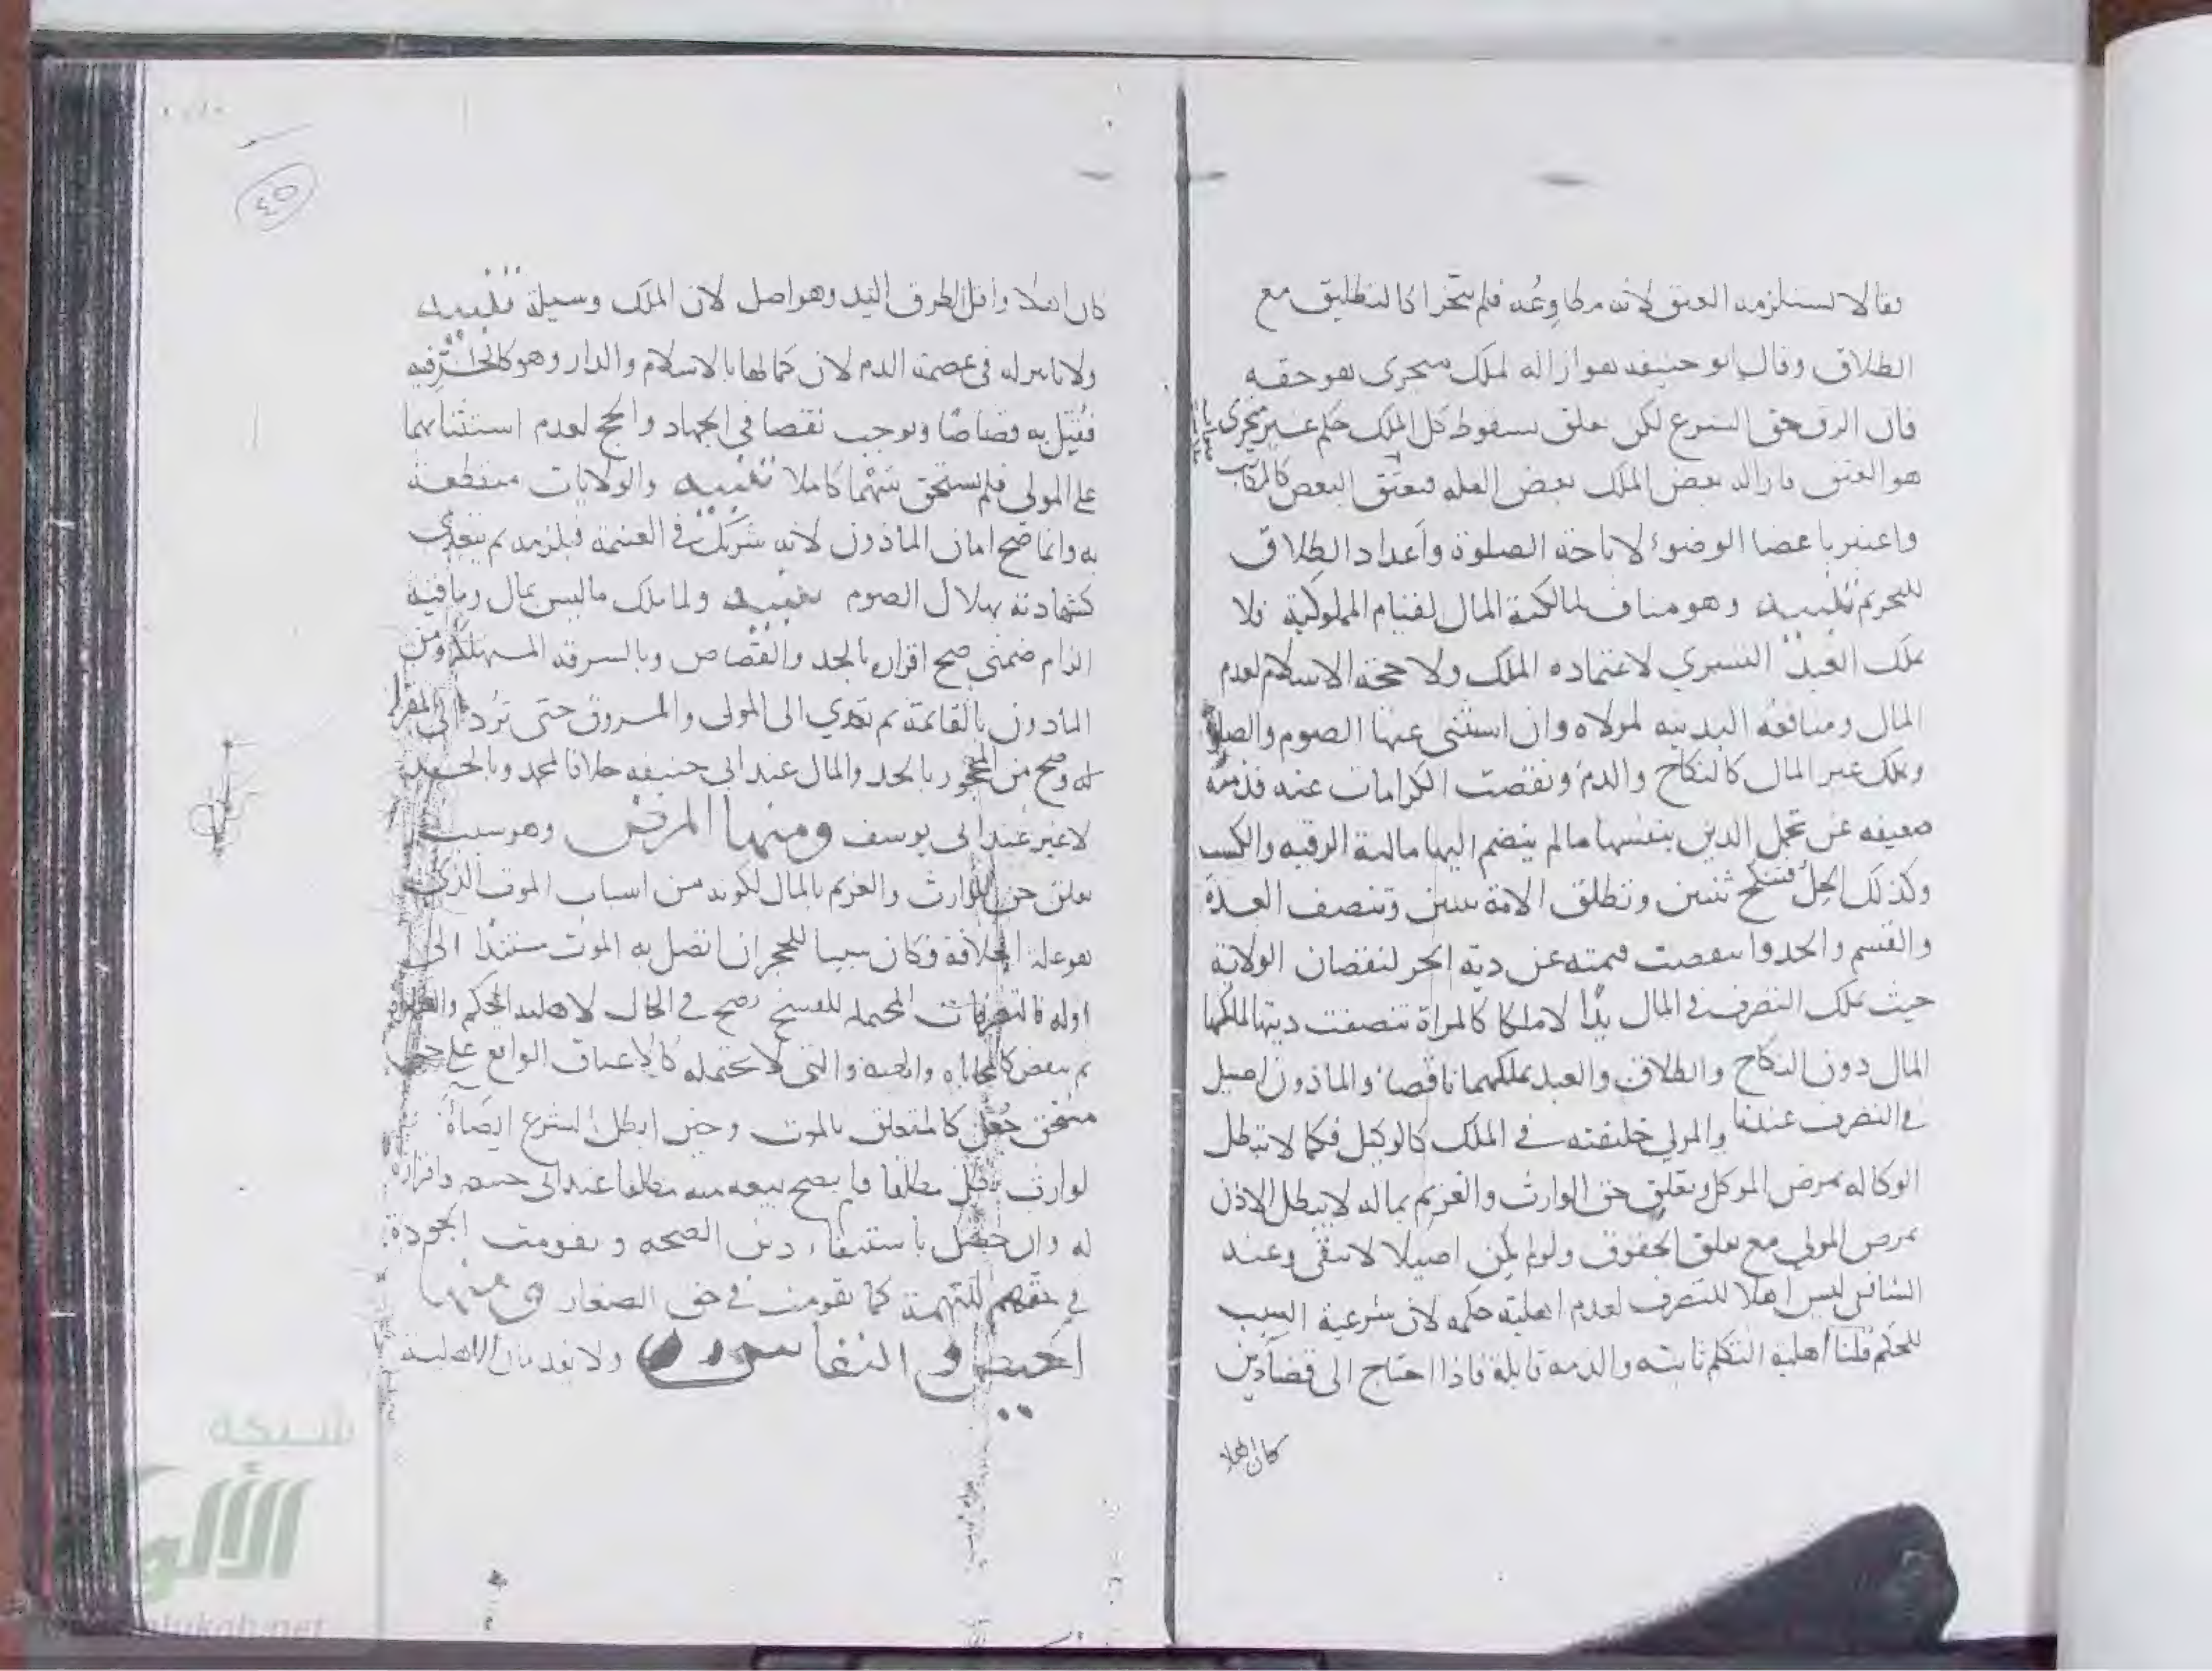 فقالا يستلزمه العتق لانه مطاوعه فلم يتجزا كالتطليق مع
الطلاق وقال ابو حنيفه هو ازاله لملك متجزى هو حقه
فان الرق حق الشرع لكن علق بسقوط كل الملك حكم غير متجزى
هو العتق فازاله بعض الملك بعض العله فيعتق البعض كالمكاتب
واعتبر باعضا الوضوء لاباحة الصلوة وأعداد الطلاق
للتحريم تنبيه وهو مناف لمالكية المال لقيام المملوكية فلا
يملك العبد التسري لاعتماده الملك ولا حجة الاسلام لعدم
المال ومنافعه البدنيه لمولاه وان استثنى عنها الصوم والصلوة
ويملك غير المال كالنكاح والدم ونقصت الكرامات عنه فذمته
ضعيفه عن تحمل الدين بنفسها مالم ينضم اليها مالية الرقبه والكسب
وكذلك الحل فينكح ثنتين وتطلق الامة ثنتين وتنصف العدة
والقسم والحد وانتقصت قيمته عن دية الحر لنقصان الولاية
حيث يملك التصرف في المال يدا لا ملكا كالمراة تنصفت ديتها لملكها
المال دون النكاح والطلاق والعبد يملكهما ناقصا والماذون اصيل
في التصرف عندنا والمولى خليفته في الملك كالوكيل فكما لا تبطل
الوكاله بمرض الموكل وتعلق حق الوارث والغريم بماله لا يبطل الاذن
بمرض المولى مع تعلق الحقوق ولو لم يكن اصيلا لا تنفى وعند
الشافعي ليس اهلا للتصرف لعدم اهليته حكمه لان شرعية السبب
للحكم قلنا اهلية التكلم ثابته والذمه قابلة فاذا احتاج الى قضاء دين
كان اهلا
٤٥
كان اهلا واقل الطرق اليد وهو اصل لان الملك وسيلة تنبيه
ولا تاثير له في عصمة الدم لان كمالها بالاسلام والدار وهو كالحر فيه
فقتل به قصاصا ويوجب نقصا في الجهاد والحج لعدم استثنائهما
على المولى فلم يستحق سهما كاملا تنبيه والولايات منقطعة
به وانما صح امان الماذون لانه شريك في الغنيمة فيلزمه ثم يتعدى
كشهادته بهلال الصوم تنبيه ولما ملك ما ليس بمال وما فيه
الزام ضمني صح اقراره بالحد والقصاص وبالسرقه المستهلكة ومن
الماذون بالقائمة ثم تؤدي الى المولى والمسروق حتى ترد الى المقر
له وصح من المحجور بالحد والمال عند ابى حنيفه خلافا لمحمد وبالحد
لا غير عند ابى يوسف ومنها المرض وهو سبب
تعلق حق الوارث والغريم بالمال لكونه من اسباب الموت الذي
هو علة الخلافة فكان سببا للحجر ان اتصل به الموت مستندا الى
اوله فالتصرفات المحتمله للفسخ تصح في الحال لاهليه الحكم
ثم ينقض كالمحاباه والهبه والتي لا تحتمله كالاعتاق الواقع على حق
مستحق جعل كالمتعلق بالموت وحين ابطل الشرع ايصاءه
لوارث بطل مطلقا فلم يصح بيعه منه مطلقا عند ابى حنيفه واقراره
له وان حصل باستيفاء دين الصحه وتقومت الجودة
في حقهم للتهمة كما تقومت في حق الصغار ومنها
الحيض والنفاس ولا يعدمان الاهلية
شبكة
الألوكة